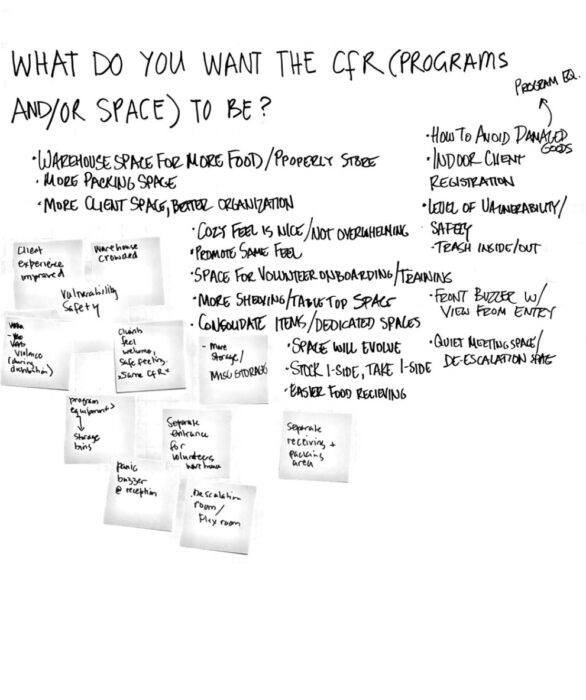 WHAT DO YOU WANT THE CFR (PROGRAMS
AND/OR SPACE) TO BE?
PROGRAM EQ.
• WAREHOUSE SPACE FOR MORE FOOD/PROPERLY STORE
• MORE PACKING SPACE
• MORE CLIENT SPACE, BETTER ORGANIZATION
• COZY FEEL IS NICE/NOT OVERWHELMING
• PROMOTE SAME FEEL
• SPACE FOR VOLUNTEER ONBOARDING/TRAINING
• MORE SHELVING/TABLE TOP SPACE
• CONSOLIDATE ITEMS/DEDICATED SPACES
• SPACE WILL EVOLVE
• STOCK 1-SIDE, TAKE 1-SIDE
• EASIER FOOD RECIEVING
• HOW TO AVOID DAMAGED
GOODS
• INDOOR CLIENT
REGISTRATION
• LEVEL OF VULNERABILITY/
SAFETY
- TRASH INSIDE/OUT
• FRONT BUZZER W/
VIEW FROM ENTRY
• QUIET MEETING SPACE/
DE-ESCALATION SPACE
Client
experience
improved
Warehouse
crowded
Vulnerability
Safety
Violence
(during
distribution)
Clients
feel
welcome,
safe feeling.
Same CFR
- More
Storage/
MISC STORAGE
program
equipment
storage
bins
Separate
entrance
for
volunteers
warehouse
Separate
receiving +
packing
area
panic
buzzer
@ reception
Descalation
room/
Flex room